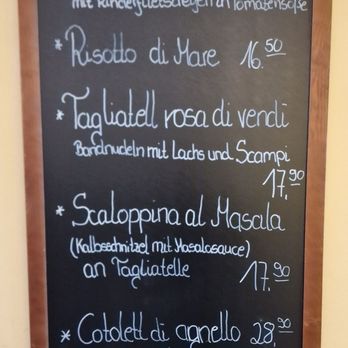 mit Rinderfiletstreifen in Tomatensoße
* Risotto di Mare 16.50
* Tagliatell rosa di vendi
Bandnudeln mit Lachs und Scampi
17.90
* Scaloppina al Masala
(Kalbsschnitzel mit Masalasauce)
an Tagliatelle 17.90
* Cotolett di agnello 28.90